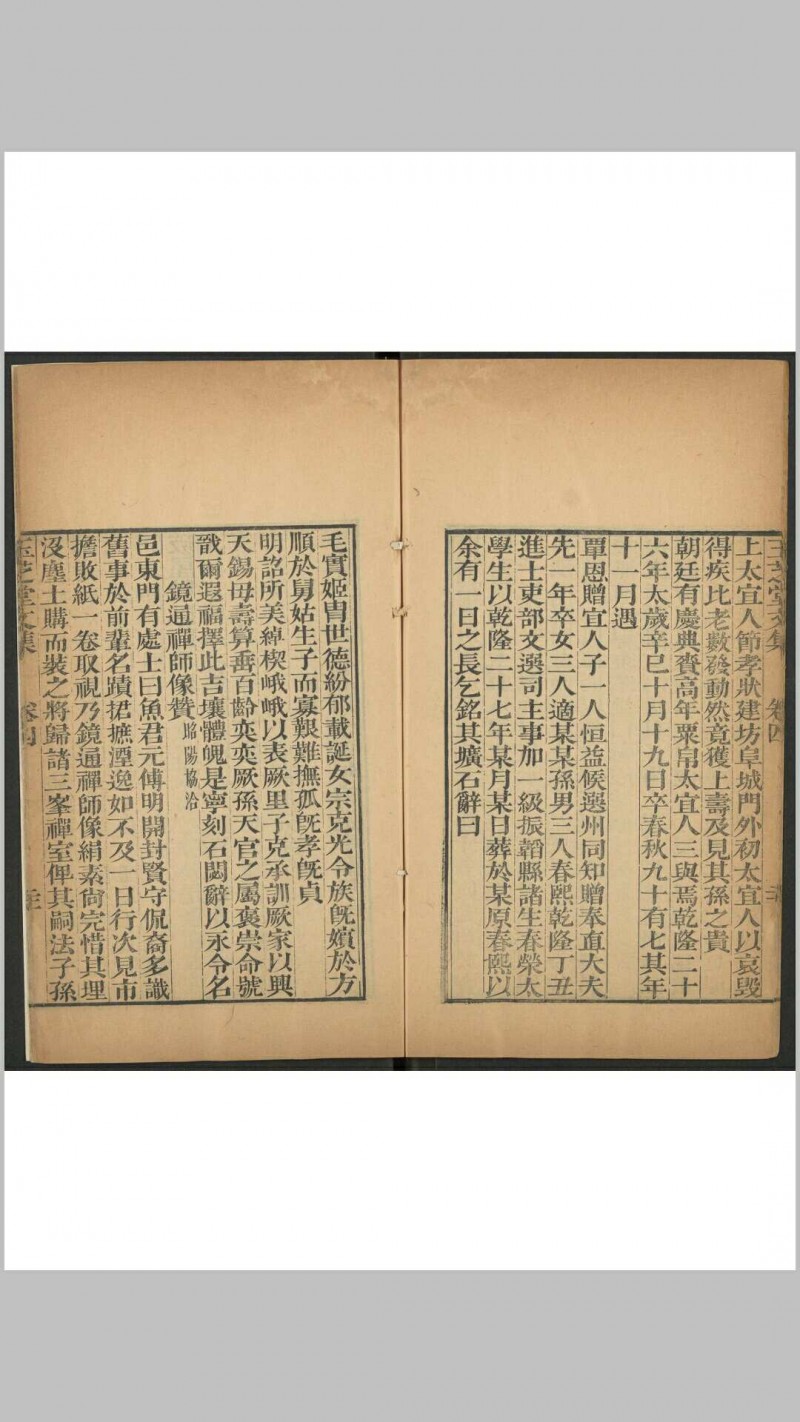 玉芝堂文集　卷四
上太宜人節孝狀建坊阜城門外初太宜人以哀毀
得疾比老數發動然竟獲上壽及見其孫之貴
朝廷有慶典賚高年粟帛太宜人三與焉乾隆二十
六年太歲辛巳十月十九日卒春秋九十有七其年
十一月遇
覃恩贈宜人子一人恒益候選州同知贈奉直大夫
先一年卒女三人適某某孫男三人春熙乾隆丁丑
進士吏部文選司主事加一級振韜縣諸生春榮太
學生以乾隆二十七年某月某日葬於某原春熙以
余有一日之長乞銘其壙石辭曰
毛實姬冑世德紛郁載誕女宗克光令族旣嬪於方
順於舅姑生子而寡艱難撫孤旣孝旣貞
明詔所美綽楔峨峨以表厥里子克承訓厥家以興
天錫母壽算垂百齡奕奕厥孫天官之屬褒崇命號
戩爾遐福擇此吉壤體魄是寧刻石閟辭以永令名
鏡通禪師像贊昭陽協洽
邑東門有處士曰魚君元傅明開封賢守侃裔多識
舊事於前輩名蹟捃摭湮逸如不及一日行次見市
擔敗紙一卷取視乃鏡通禪師像絹素尙完惜其埋
沒塵土購而裝之將歸諸三峯禪室俾其嗣法子孫
玉芝堂文集　卷四